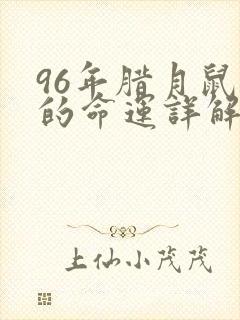 96年腊月鼠
的命運詳解
上仙小茂茂